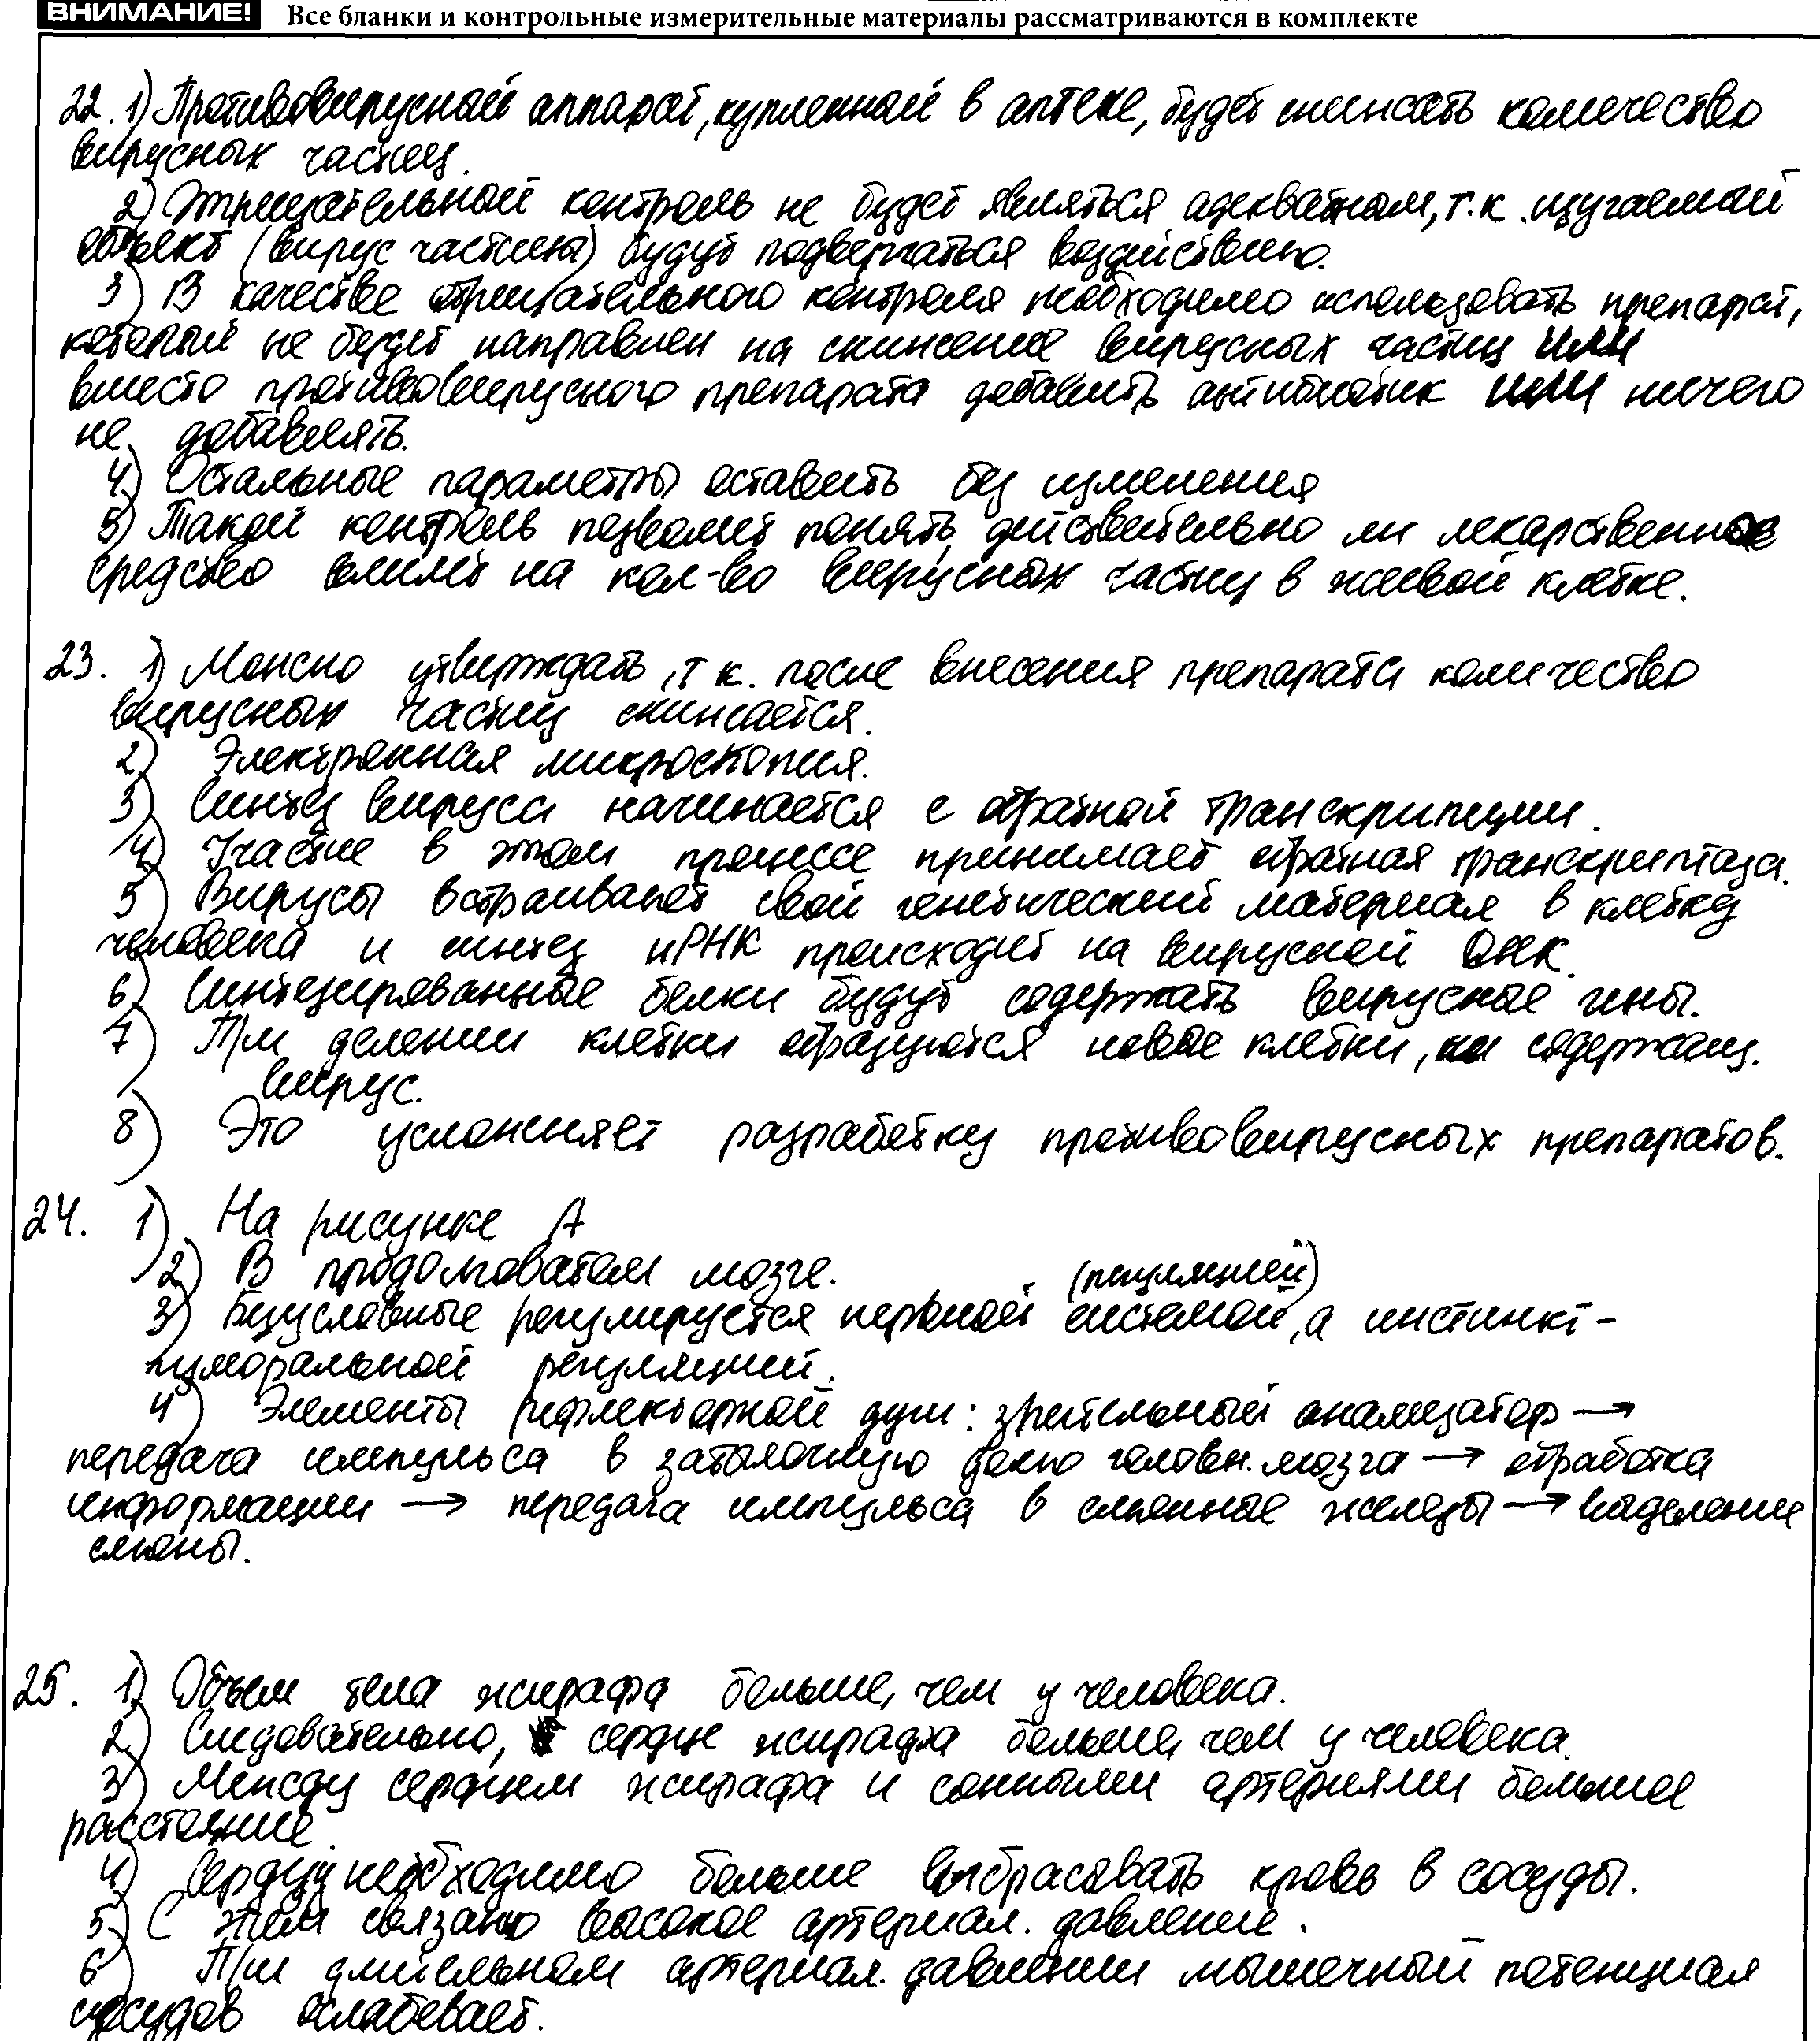 ВНИМАНИЕ! Все бланки и контрольные измерительные материалы рассматриваются в комплекте
22. 1) Противовирусный аппарат, купленный в аптеке, будет снижать количество
вирусных частиц.
2) Отрицательный контроль не будет являться адекватным, т.к. изучаемый
объект (вирус частицы) будут подвергаться воздействию.
3) В качестве отрицательного контроля необходимо использовать препарат,
который не будет направлен на снижение вирусных частиц или
вместо противовирусного препарата добавить антибиотик или ничего
не добавлять.
4) Остальные параметры оставить без изменения
5) Такой контроль позволит понять, действительно ли лекарственное
средство влияет на кол-во вирусных частиц в живой клетке.
23. 1) Можно утверждать, т.к. после внесения препарата количество
вирусных частиц снижается.
2) Электронная микроскопия.
3) Синтез вируса начинается с обратной транскрипции.
4) Участие в этом процессе принимает обратная транскриптаза.
5) Вирусы встраивают свой генетический материал в клетку
человека и синтез иРНК происходит на вирусной ДНК.
6) Синтезированные белки будут содержать вирусные гены.
7) При делении клетки образуются новые клетки, содержащ.
вирус.
8) Это усложняет разработку противовирусных препаратов.
24. 1) На рисунке А
2) В продолговатом мозге.
(регуляцией)
3) Безусловные регулируется нервной системой, а инстинкт -
гуморальной регуляцией.
4) Элементы рефлекторной дуги: зрительный анализатор →
передача импульса в затылочную долю головн. мозга → обработка
информации → передача импульса в слюнные железы → выделение
слюны.
25. 1) Объем тела жирафа больше, чем у человека.
2) Следовательно, сердце жирафа больше, чем у человека.
3) Между сердцем жирафа и сонными артериями большее
расстояние.
4) Сердцу необходимо больше выбрасывать кровь в сосуды.
5) С этим связано высокое артериал. давление.
6) При длительном артериал. давлении мышечный потенциал
сосудов ослабевает.